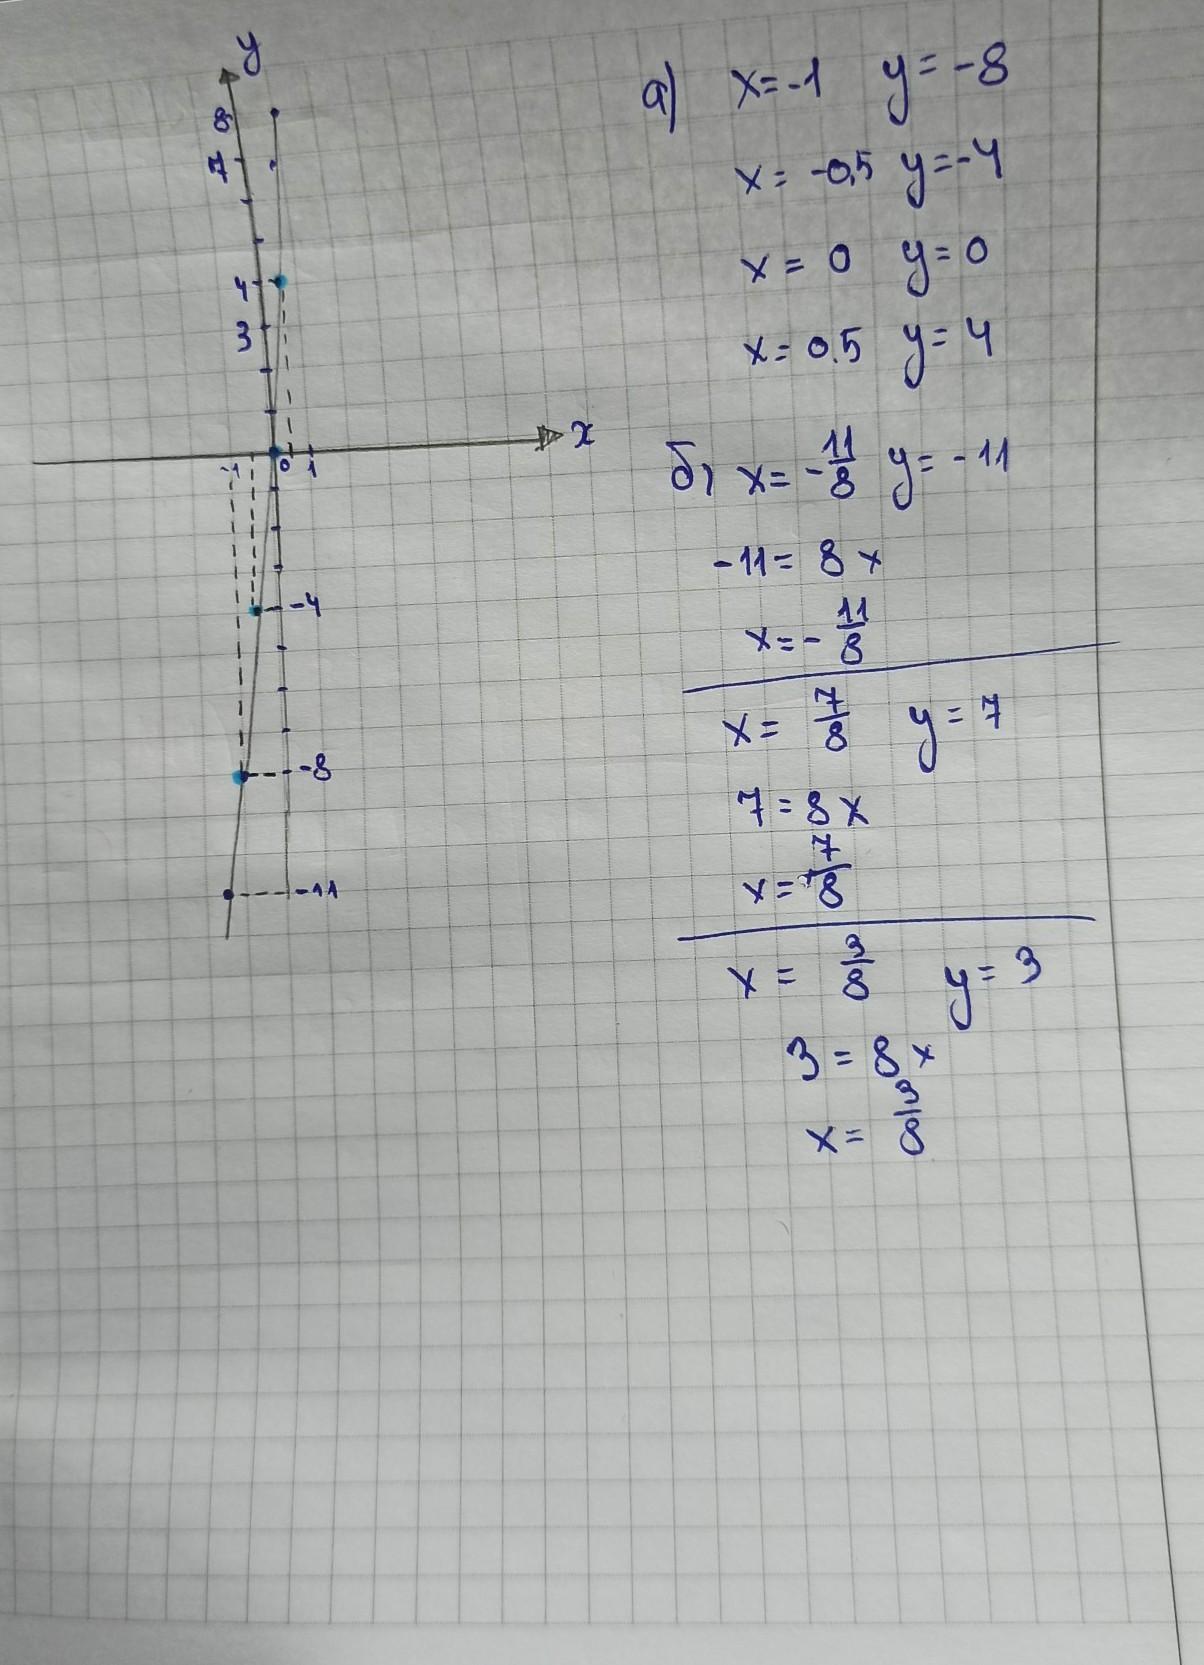 y
8
7
4
3
x
-1 0 1
-4
-8
-11
а) x=-1 y=-8
x=-0,5 y=-4
x=0 y=0
x=0.5 y=4
б) x=-11/8 y=-11
-11=8x
x=-11/8
x=7/8 y=7
7=8x
x=7/8
x=3/8 y=3
3=8x
x=3/8